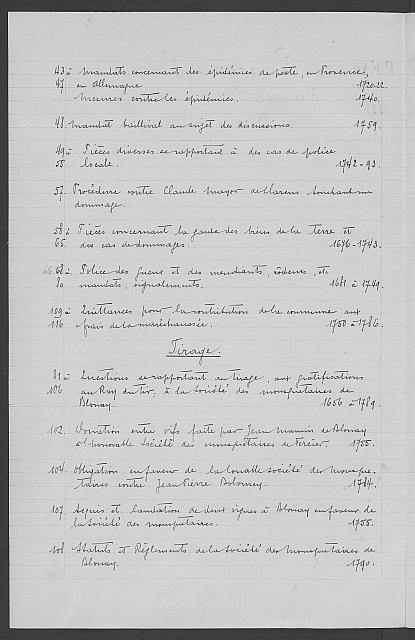 43 à Mandats concernant des épidémies de peste, en Provence,
47. en Allemagne 1720-22.
Mesures contre les épidémies. 1740.
48. Mandat baillival au sujet des discussions. 1759.
49 à Pièces diverses se rapportant à des cas de police
55 locale. 1742-93.
57. Procédure contre Claude mayor de Clarens touchant un
dommage.
58 à Pièces concernant la garde des biens de la terre et
65. des cas de dommages. 1676-1743.
66 68 à Police des gueux et des mendiants, rôdeurs, etc
80 mandats, signalements. 1681 à 1749.
109 à Quittances pour la contribution de la commune aux
116 frais de la maréchaussée. 1750 à 1786.
Tirage.
81 à Questions se rapportant au tirage, aux gratifications
106 au Roy du tir, à la Société des mousquetaires de
Blonay. 1656 à 1789.
102. Donation entre vifs faite par Jean Mamin de Blonay
à l'honorable Société des mousquetaires de 1755.
104. Obligation en faveur de la louable société des mousque
taires contre Jean Pierre Bolomey. 1784.
107. Acquis et laudation de deux vignes à Blonay en faveur de
la Société des mousquetaires. 1755.
108 Statuts et Règlements de la Société des Mousquetaires de
Blonay. 1790.